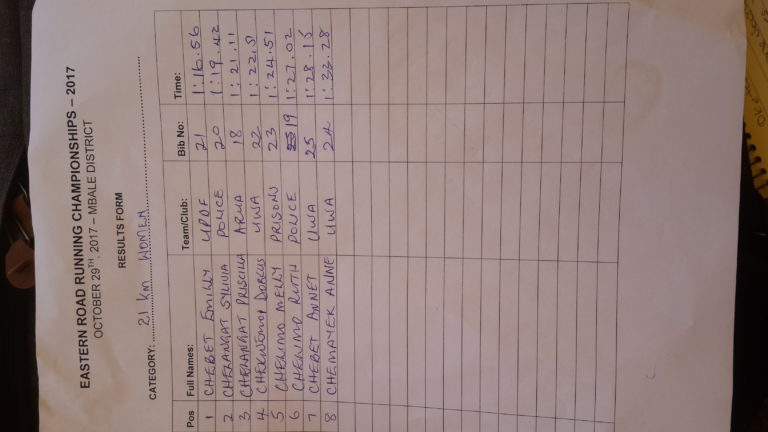 EASTERN ROAD RUNNING CHAMPIONSHIPS – 2017
OCTOBER 29TH, 2017 – MBALE DISTRICT
RESULTS FORM
CATEGORY: 21 Km WOMEN
Pos Full Names: Team/Club: Bib No: Time:
1 CHEBET EMILLY UPDF 21 1:16.56
2 CHELANGAT SYLIVIA POLICE 20 1:19.42
3 CHELANGAT PRISCILLA ARUA 18 1:21.11
4 CHEKWEMOI DORCUS UWA 22 1:22.51
5 CHEKIMO MELLY PRISONS 23 1:24.51
6 RUTH POLICE 19 1:27.02
7 CHEBET ANNET UWA 25 1:28.15
8 CHEMAYEK ANNE UWA 24 1:33.28